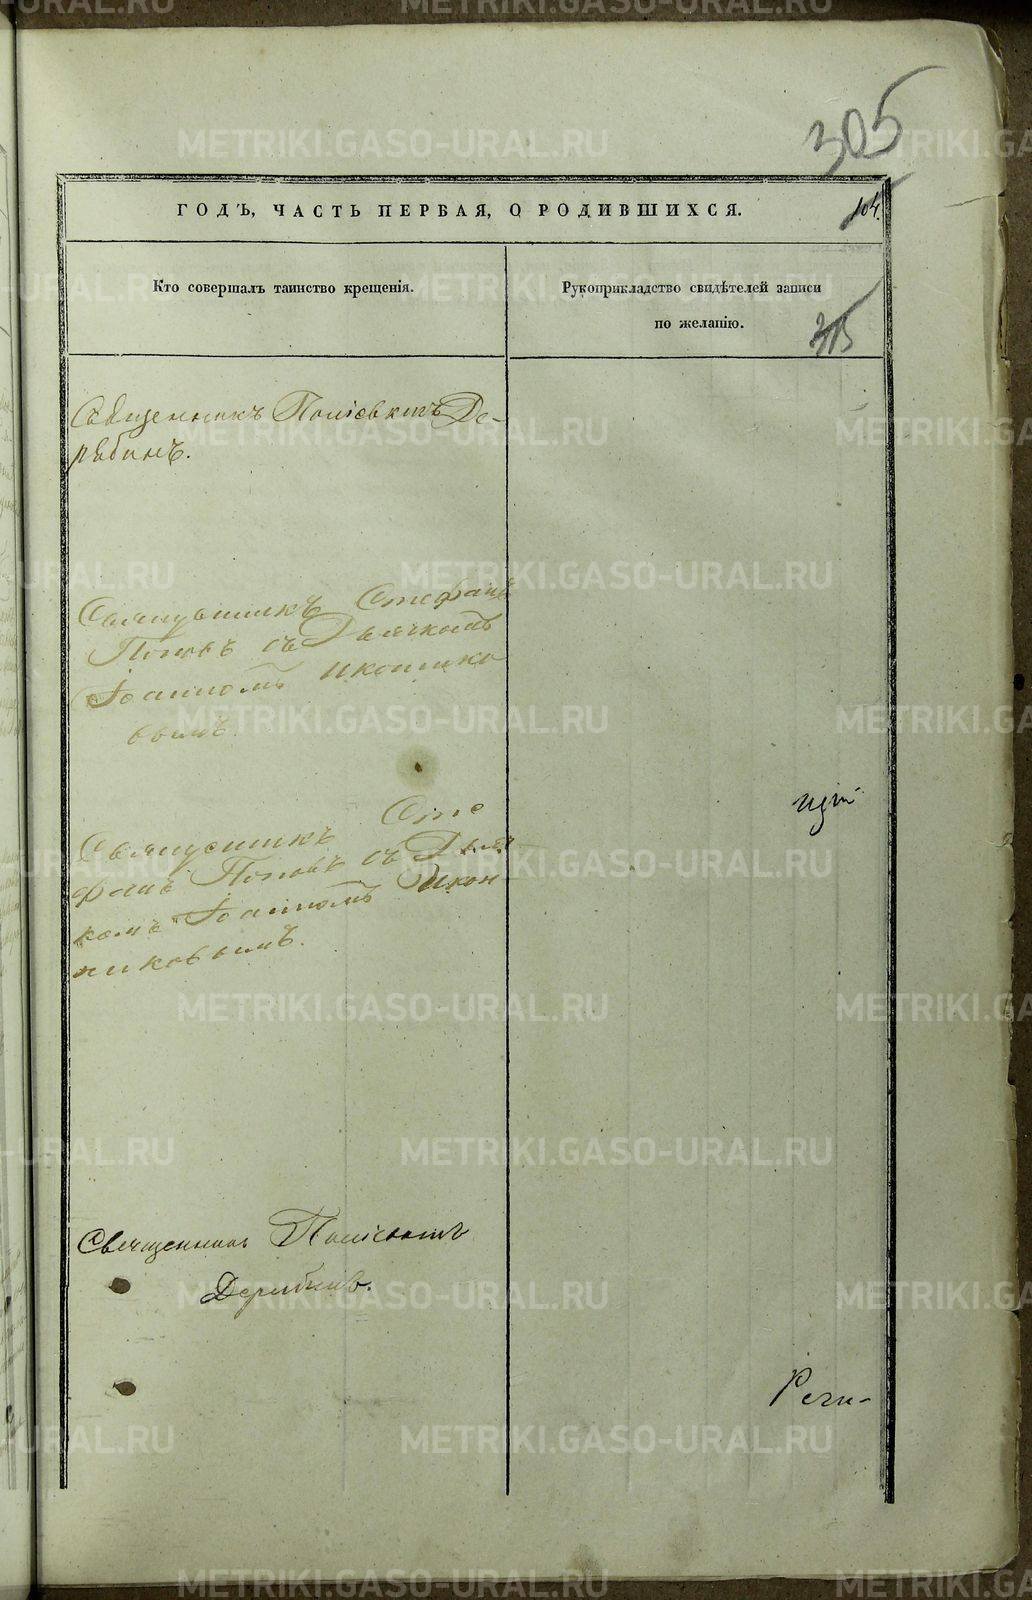 305
ГОДЪ, ЧАСТЬ ПЕРВАЯ, О РОДИВШИХСЯ.
104.
Кто совершалъ таинство крещенія.
Рукоприкладство свидѣтелей записи
по желанію.
315
Священникъ Поліевктъ Де-
рябинъ.
Священникъ Стефанъ
Поповъ съ Дьячкомъ
Іоанномъ Иконнико
вымъ.
Священникъ Сте
фанъ Поповъ съ Дьяч
комъ Іоанномъ Икон
никовымъ.
Священникъ Поліевктъ
Дерябинъ.
METRIKI.GASO-URAL.RU